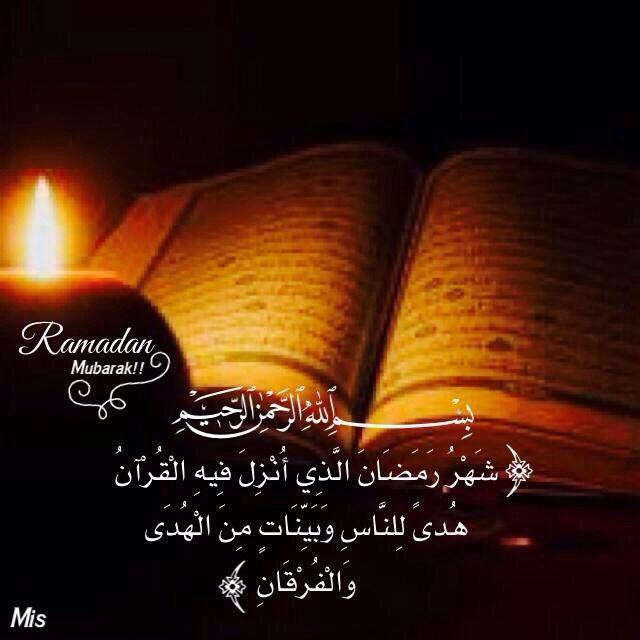 Ramadan
Mubarak!!
بِسْمِ ٱللَّٰهِ ٱلرَّحْمَٰنِ ٱلرَّحِيمِ
﴿ شَهْرُ رَمَضَانَ الَّذِي أُنْزِلَ فِيهِ الْقُرْآنُ
هُدىً لِلنَّاسِ وَبَيِّنَاتٍ مِنَ الْهُدَى
وَالْفُرْقَانِ ﴾
Mis